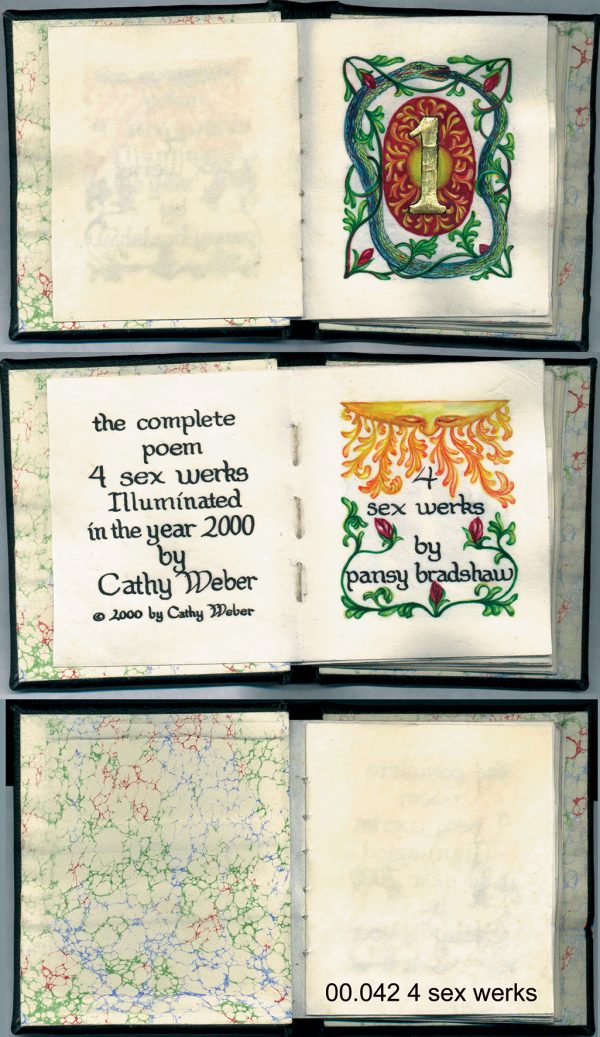 1
the complete
poem
4 sex werks
Illuminated
in the year 2000
by
Cathy Weber
© 2000 by Cathy Weber
4
sex werks
by
pansy bradshaw
00.042 4 sex werks